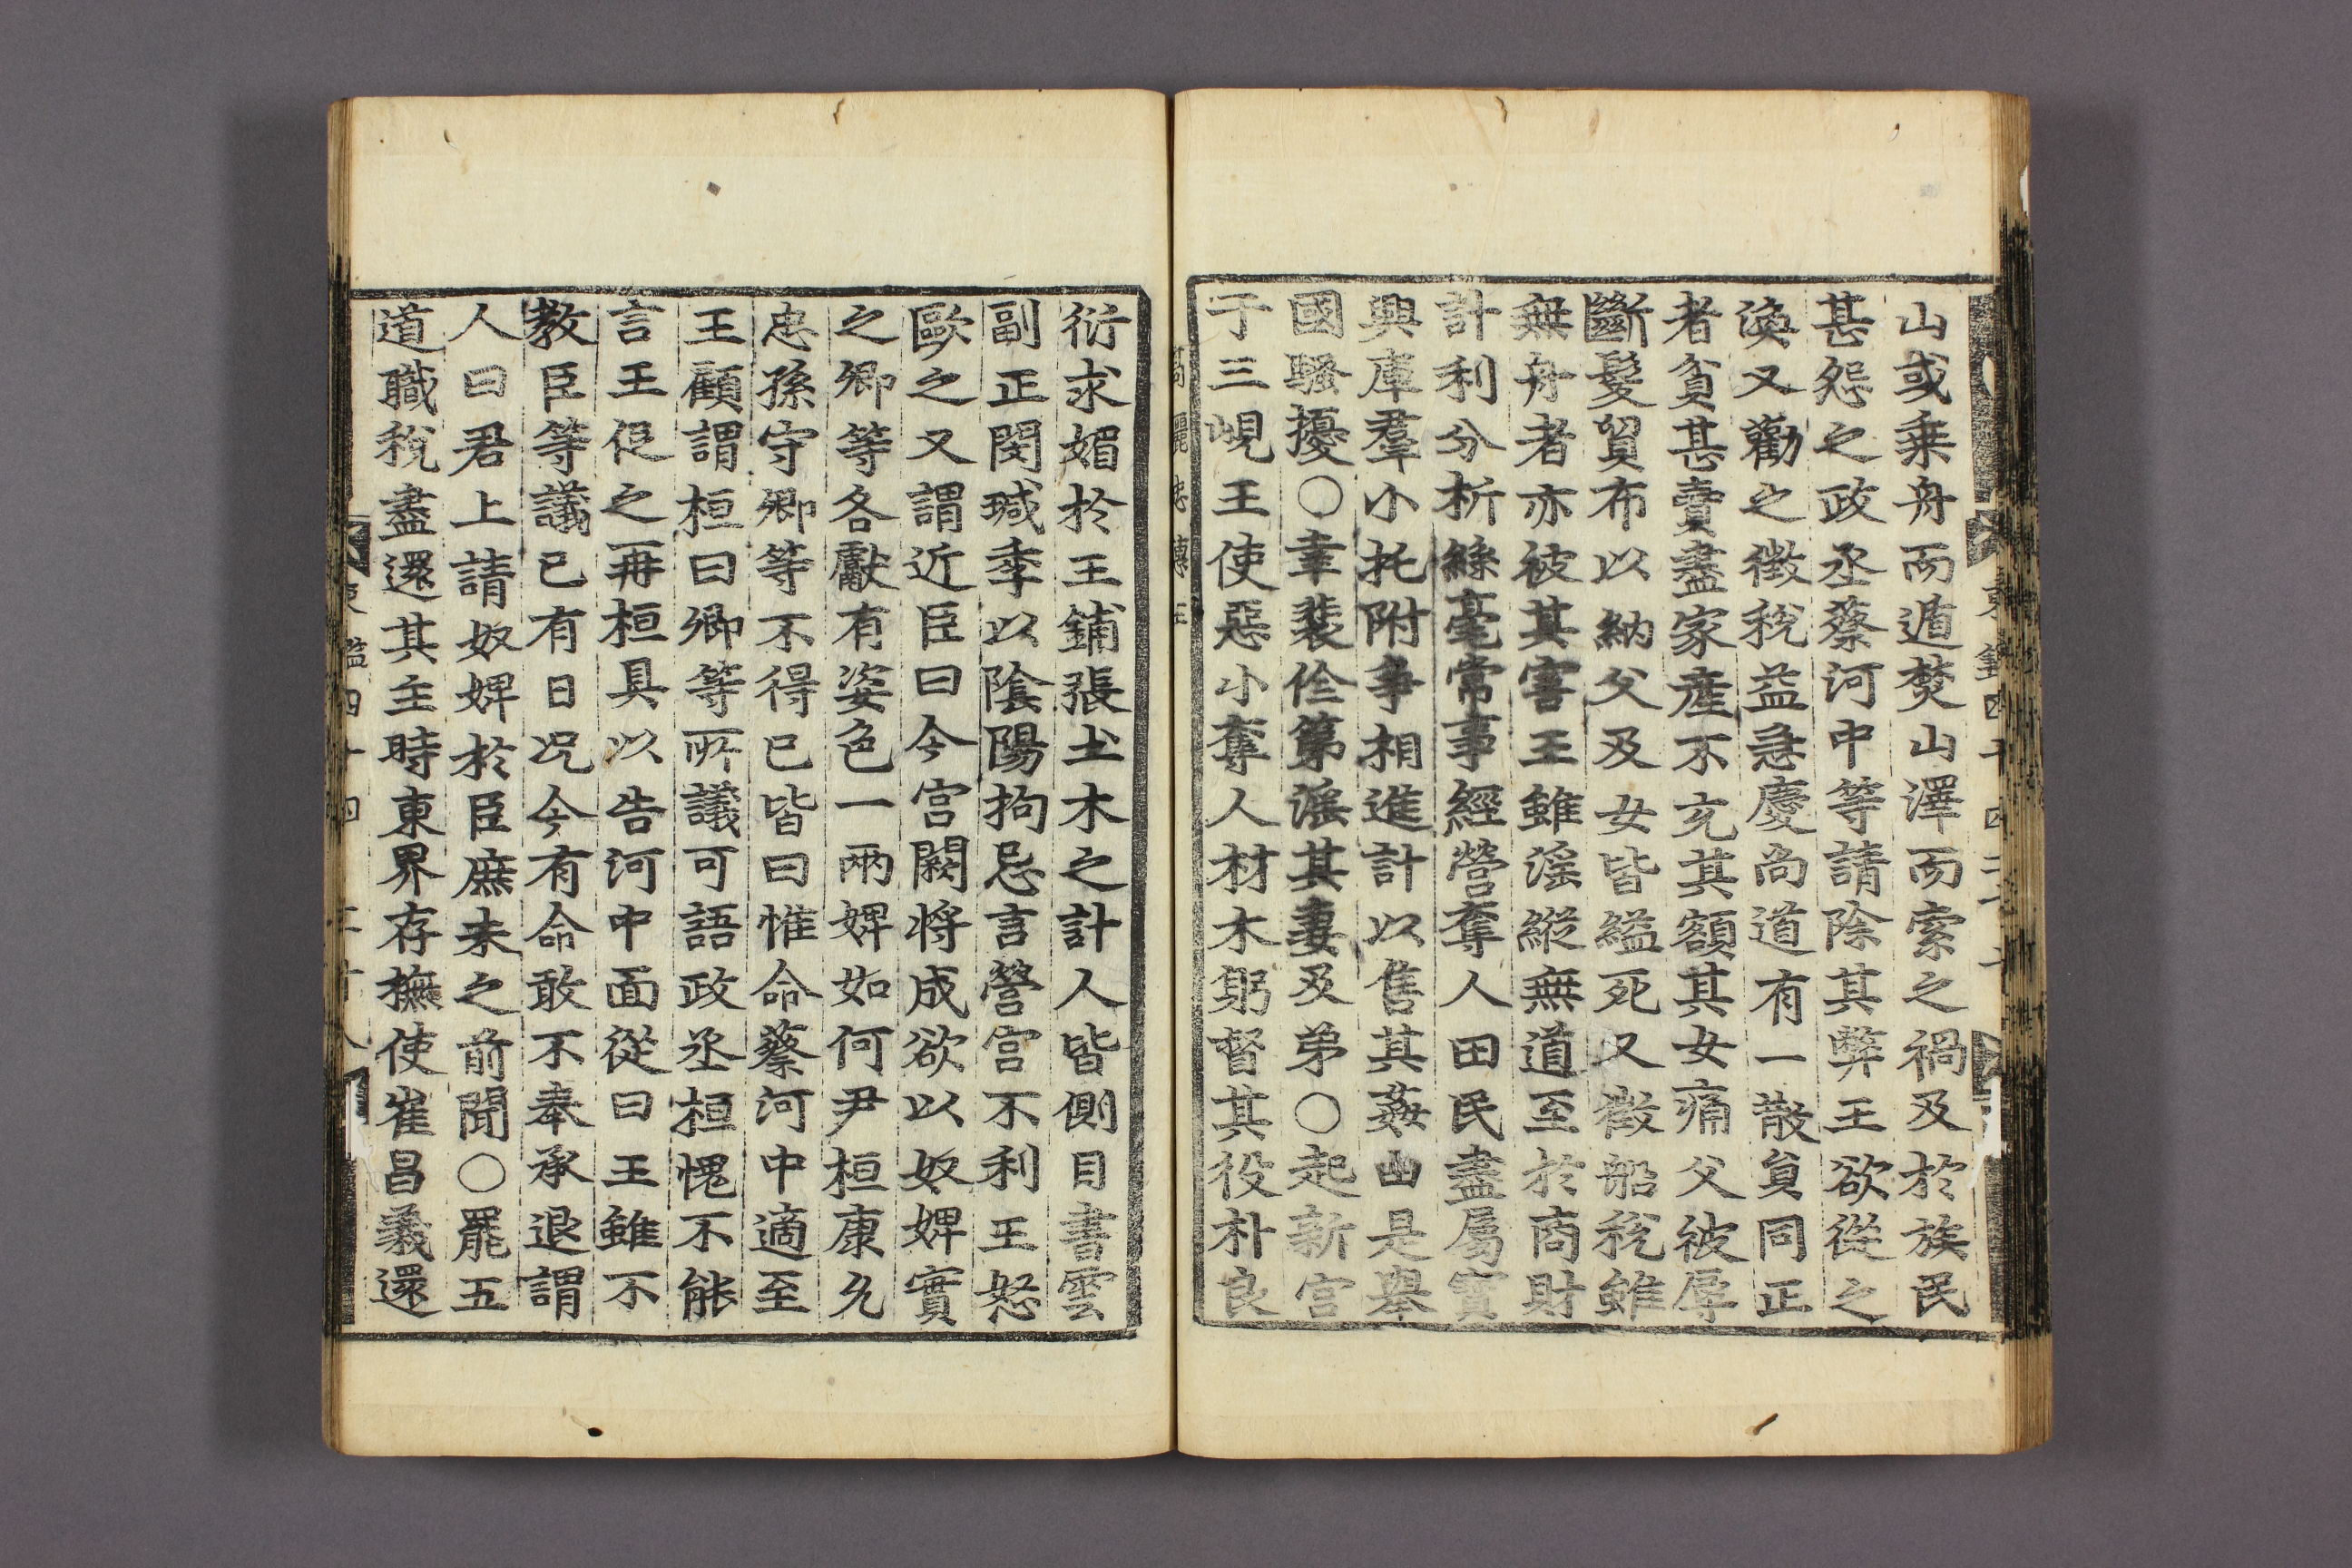 山或乗舟而遁焚山澤而索之禍及於族民
甚怨之政丞蔡河中等請除其弊王欲從之
渙又勸之徴稅益急慶尚道有一散貟同正
者貧甚賣盡家產不充其額其女痛父被辱
斷髮貿布以納父及女皆縊死又徴船稅雖
無舟者亦被其害王雖滛縱無道至於商財
計利分析絲毫常事經營奪人田民盡屬寳
興庫羣小托附爭相進計以售其姦由是舉
國騷擾○幸裴佺第滛其妻及弟○起新宫
于三峴王使惡小奪人材木躬督其役朴良
衍求媚於王鋪張土木之計人皆側目書雲
副正閔瑊季以陰陽拘忌言營宫不利王怒
歐之又謂近臣曰今宫闕將成欲以奴婢實
之卿等各獻有姿色一兩婢如何尹桓康允
忠孫守卿等不得已皆曰惟命蔡河中適至
王顧謂桓曰卿等所議可語政丞桓愧不能
言王促之再桓具以告河中面從曰王雖不
教臣等議已有日况今有命敢不奉承退謂
人曰君上請奴婢於臣庶未之前聞○罷五
道職稅盡還其主時東界存撫使崔昌義還